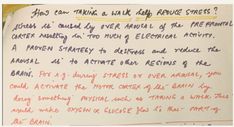 How can TAKING a WALK help REDUCE STRESS?
Stress is caused by OVER AROUSAL of the PRE FRONTAL
CORTEX resulting in TOO MUCH of ELECTRICAL ACTIVITY.
A PROVEN STRATEGY to destress and reduce the
AROUSAL is to ACTIVATE other REGIONS of the
BRAIN. For e.g. during STRESS or OVER AROUSAL, you
could ACTIVATE the MOTOR CORTEX of the BRAIN by
doing something PHYSICAL such as TAKING a WALK. This
would make OXYGEN & GLUCOSE flow to this PART of
the BRAIN.